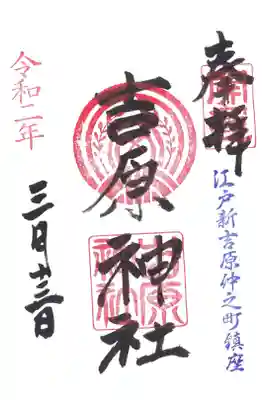 奉拝
江戸新吉原仲之町鎮座
吉原神社
令和二年
三月廿三日